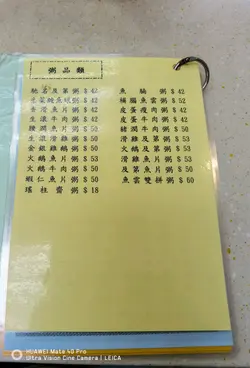 粥品類
馳名及第粥 $ 42 魚腩粥 $ 42
生菜鯪魚球粥 $ 42 豬腦魚雲粥 $ 52
香滑魚片粥 $ 42 皮蛋瘦肉粥 $ 42
生滾牛肉粥 $ 42 皮蛋牛肉粥 $ 42
豬潤魚片粥 $ 50 豬潤牛肉粥 $ 50
生滾滑雞粥 $ 50 滑雞及第粥 $ 53
金銀 粥 $ 50 火鵝及第粥 $ 53
火鵝魚片粥 $ 53 滑雞魚片粥 $ 53
火鵝牛肉粥 $ 50 及第魚片粥 $ 50
蝦仁魚片粥 $ 50 魚雲雙拼粥 $ 60
瑤柱齋粥 $ 18
HUAWEI Mate 40 Pro
Ultra Vision Cine Camera | LEICA